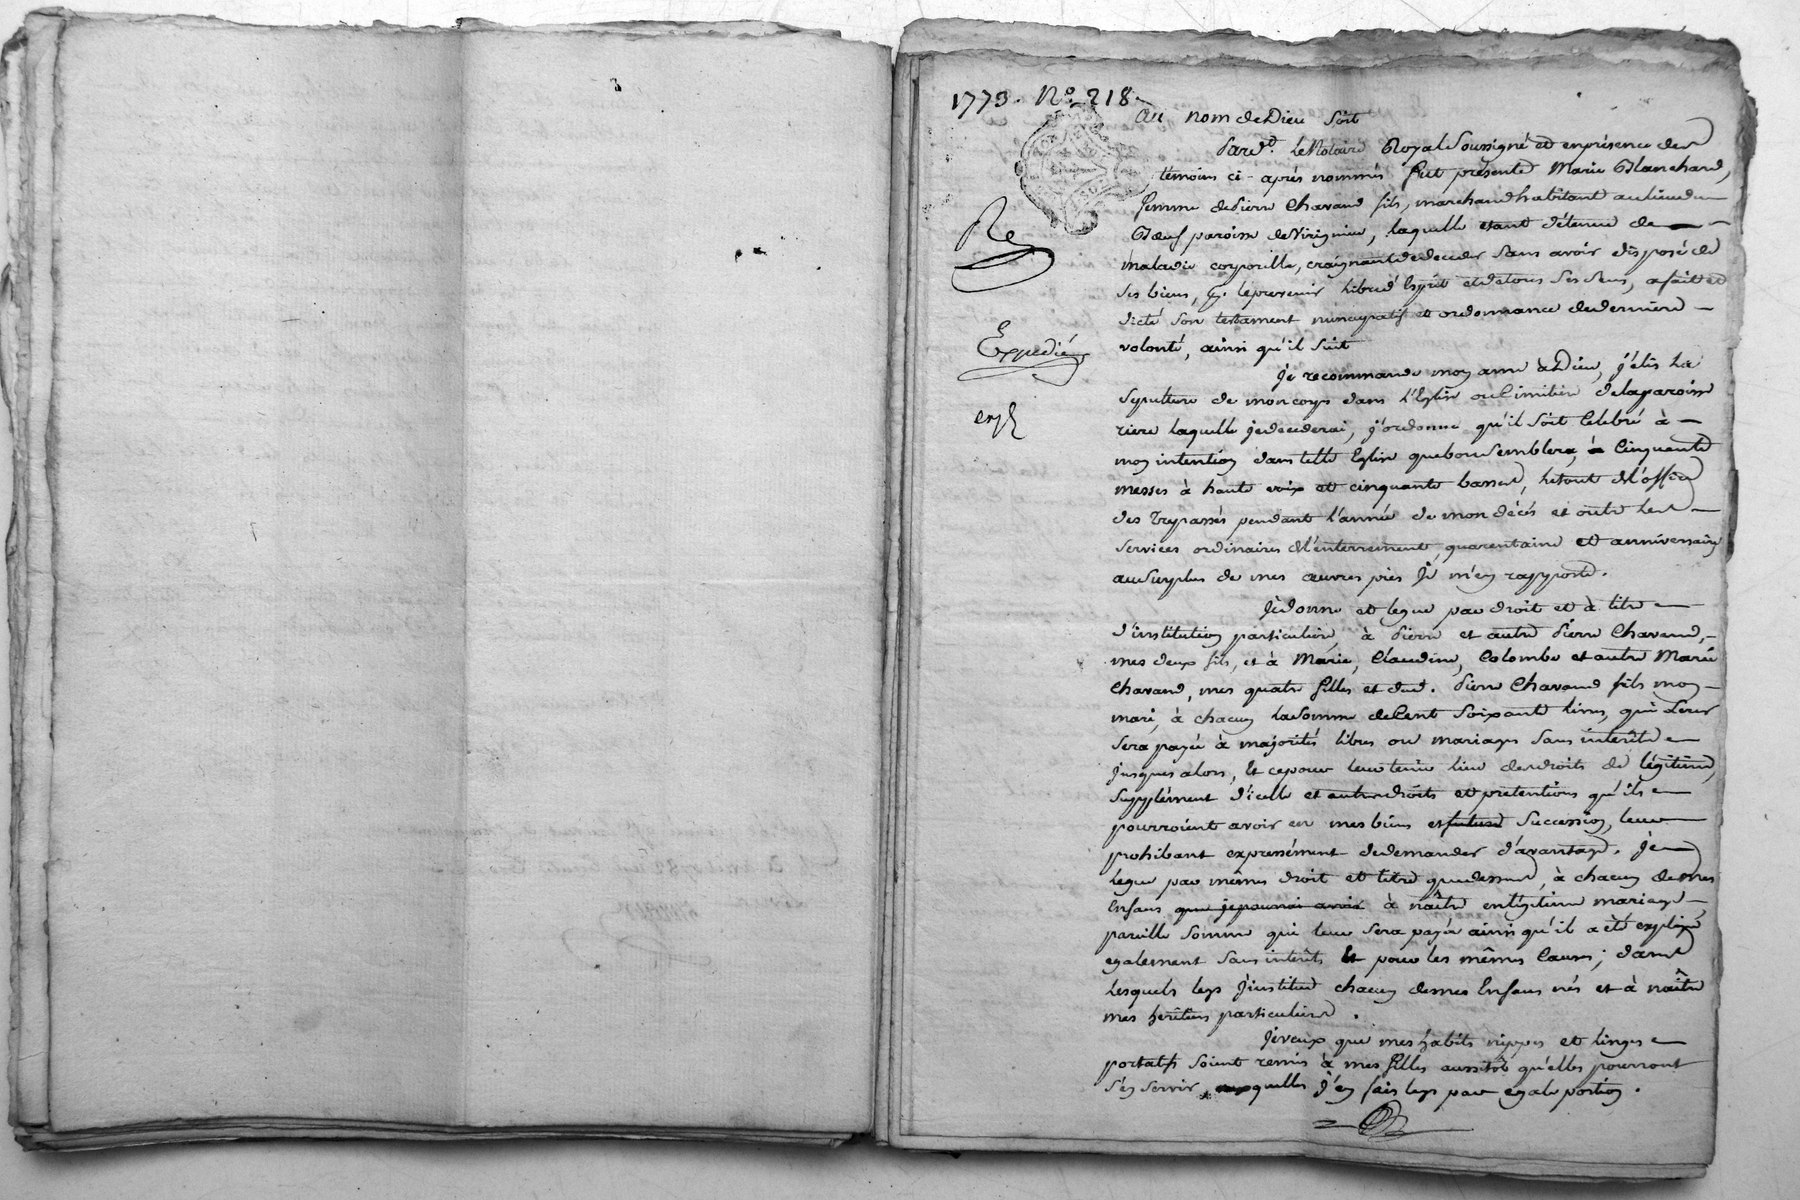 1773. N.º 218
Au nom de Dieu soit
Pard.t Le Notaire Royal Soussigné et en présence des
témoins ci-après nommés fut présente Marie Blanchard,
femme de Pierre Chavand fils, marchand habitant au lieu du
Bœuf paroisse de Virignin, laquelle etant détenue de
Re
maladie corporelle, craignant de deceder sans avoir disposé de
ses biens, p.r le prevenir libre d'Esprit et de tous ses sens, a fait et
dicté son testament nuncupatif et ordonnance de derniere
Expediée
volonté, ainsi qu'il suit
Je recommande mon ame à Dieu, j'élis la
sepulture de mon corps dans l'Eglise ou Cimitiere de la paroisse
riere laquelle je decederai, j'ordonne qu'il soit Celebré à
exp
mon intention dans telle Eglise que bon semblera, à Cinquante
messes à haute voix et cinquante basses, le tout de l'office
des Trepassés pendant l'année de mon décés et outre les
services ordinaires de l'enterrement, quarentaine et anniversaire
au surplus de mes œuvres pies Je m'en rapporte.
Je donne et legue par droit et à titre
d'institution particuliere, à Pierre et autre Pierre Chavand,
mes deux fils, et à Marie, Claudine, Colombe et autre Marie
Chavand, mes quatre filles et dud. Pierre Chavand fils mon
mari, à chacun la somme de Cent soixante livres, qui leur
sera payée à majorités libres ou mariages sans interêts
jusques alors, Et ce pour leur tenir lieu de droits de légitime,
supplément d'icelle et autres droits et pretentions qu'ils
pourroient avoir en mes biens et future succession, leur
prohibant expressément de demander d'avantage. Je
legue par mêmes droit et titre que dessus, à chacun de mes
Enfans que je pourrai avoir à naître en légitime mariage
pareille somme qui leur sera payée ainsi qu'il a été expliqué
egalement sans interêts et pour les mêmes causes; dans
lesquels legs j'institue chacun de mes Enfans nés et à naître
mes heritiers particuliers.
Je veux que mes habits nippes et linges
portatifs soient remis à mes filles aussitôt qu'elles pourront
s'en servir, auxquelles j'en fais legs par egale portion.